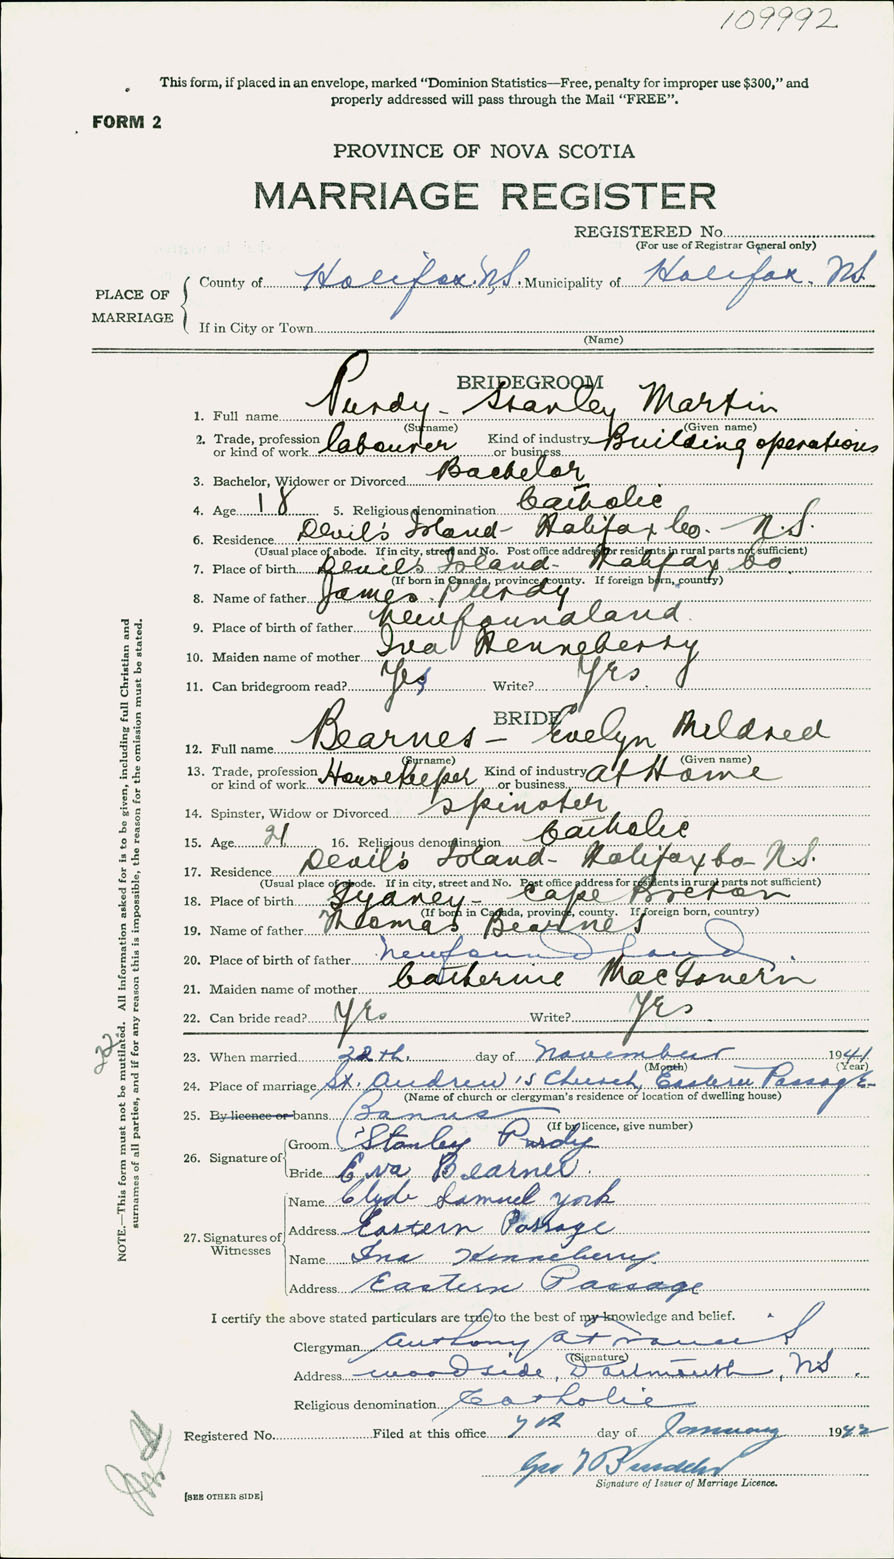 109992
This form, if placed in an envelope, marked “Dominion Statistics—Free, penalty for improper use $300,” and
properly addressed will pass through the Mail “FREE”.
FORM 2
PROVINCE OF NOVA SCOTIA
MARRIAGE REGISTER
REGISTERED No.
(For use of Registrar General only)
PLACE OF MARRIAGE
County of Halifax. N.S. Municipality of Halifax. N.S.
If in City or Town
(Name)
BRIDEGROOM
1. Full name Purdy - Stanley Martin
(Surname) (Given name)
2. Trade, profession or kind of work labourer Kind of industry or business Building operations
3. Bachelor, Widower or Divorced Bachelor
4. Age 18 5. Religious denomination Catholic
6. Residence Devil's Island - Halifax Co. - N.S.
(Usual place of abode. If in city, street and No. Post office address for residents in rural parts not sufficient)
7. Place of birth Devil's Island - Halifax Co.
(If born in Canada, province, county. If foreign born, country)
8. Name of father James Purdy
9. Place of birth of father Newfoundland
10. Maiden name of mother Iva Henneberry
11. Can bridegroom read? Yes Write? Yes.
BRIDE
12. Full name Bearnes - Evelyn Mildred
(Surname) (Given name)
13. Trade, profession or kind of work Housekeeper Kind of industry or business at Home
14. Spinster, Widow or Divorced spinster
15. Age 21 16. Religious denomination Catholic
17. Residence Devil's Island - Halifax Co - N.S.
(Usual place of abode. If in city, street and No. Post office address for residents in rural parts not sufficient)
18. Place of birth Sydney - Cape Breton
(If born in Canada, province, county. If foreign born, country)
19. Name of father Thomas Bearnes
20. Place of birth of father Newfoundland.
21. Maiden name of mother Catherine
22. Can bride read? Yes Write? Yes.
23. When married 22th. day of November 1941
(Month) (Year)
24. Place of marriage St. Andrew's Church, Eastern Passage
(Name of church or clergyman's residence or location of dwelling house)
25. By licence or banns Banns
(If by licence, give number)
26. Signature of
Groom Stanley Purdy
Bride Eva Bearnes.
27. Signatures of Witnesses
Name Clyde Samuel York
Address Eastern Passage
Name Ina Henneberry.
Address Eastern Passage
I certify the above stated particulars are true to the best of my knowledge and belief.
Clergyman Anthony
(Signature)
Address Woodside, Dartmouth, N.S.
Religious denomination Catholic
Registered No. Filed at this office 7th day of January 1942
Geo
Signature of Issuer of Marriage Licence.
[SEE OTHER SIDE]
NOTE.—This form must not be mutilated. All information asked for is to be given, including full Christian and
surnames of all parties, and if for any reason this is impossible, the reason for the omission must be stated.